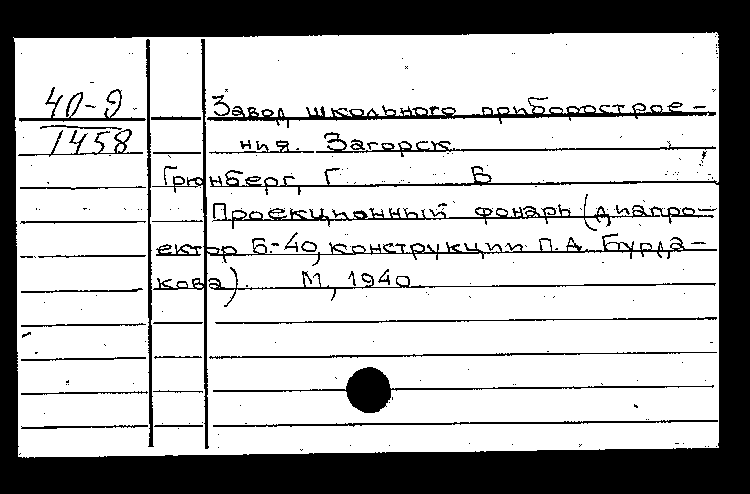 40-9
1458
Завод школьного приборострое-
ния. Загорск
Грюнберг, Г В
Проекционный фонарь (диапро-
ектор Б-40, конструкции П.А. Бурда-
кова). М, 1940